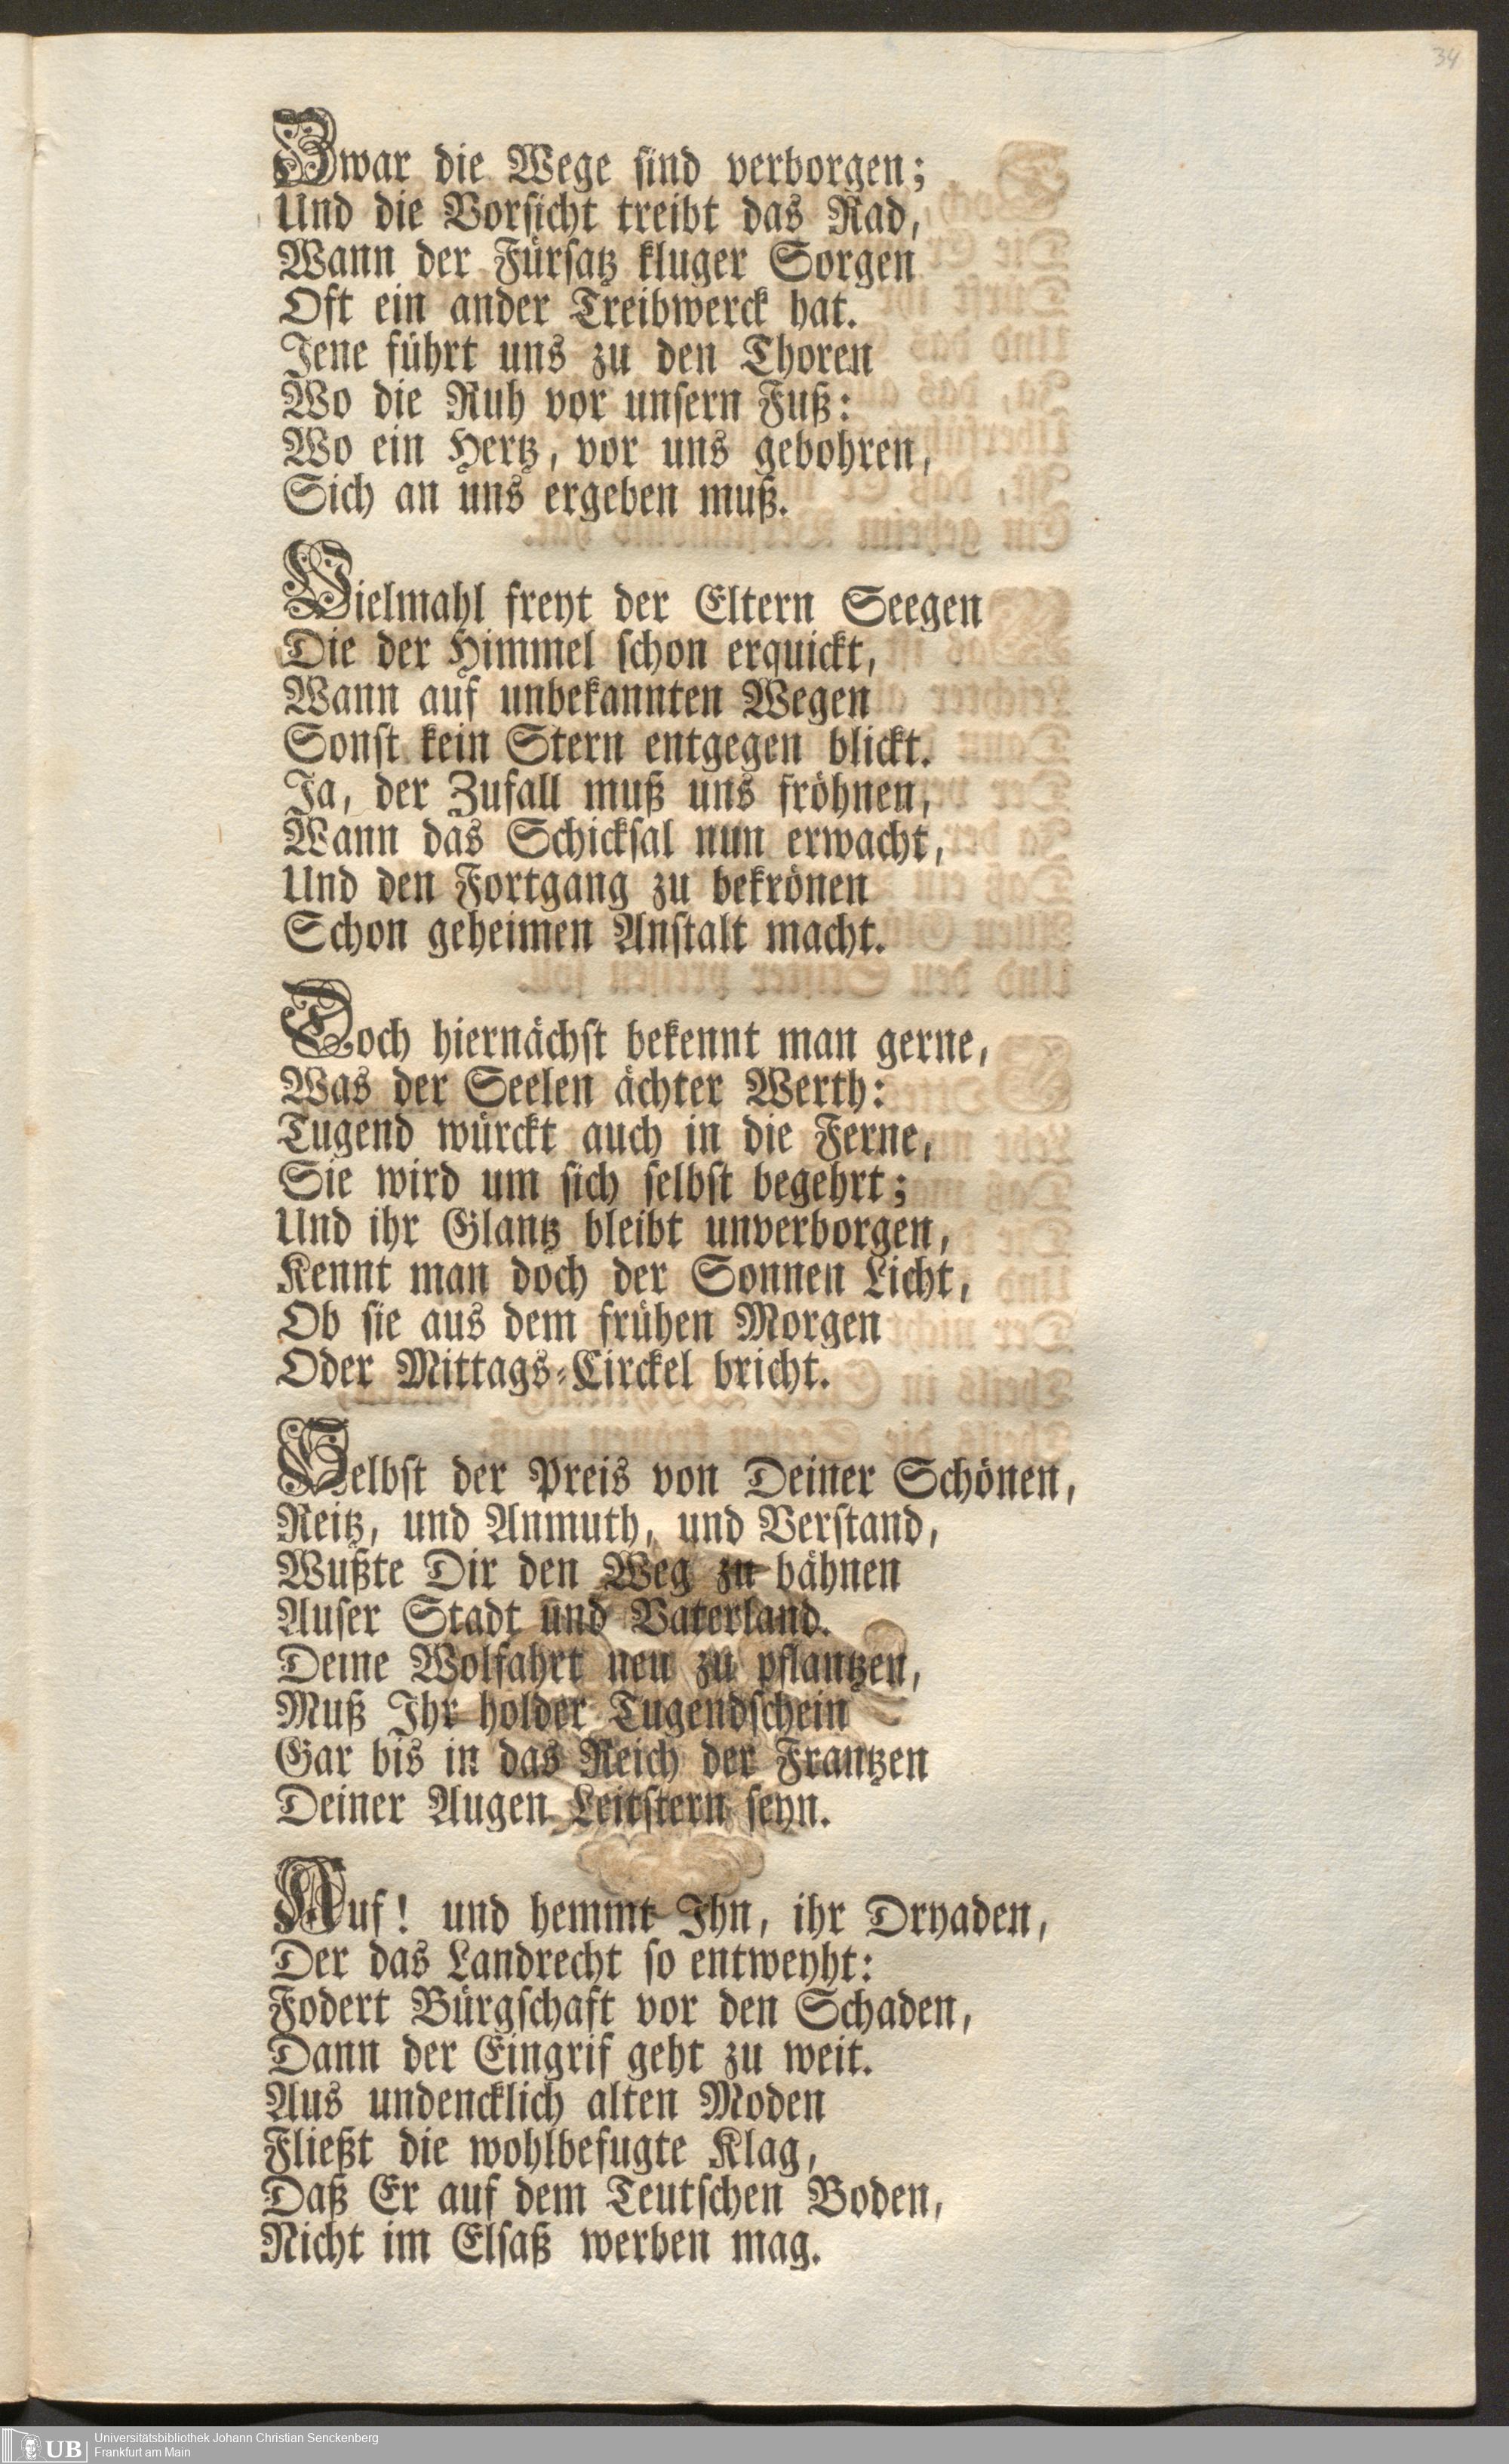 34
Zwar die Wege sind verborgen;
Und die Vorsicht treibt das Rad,
Wann der Fürsatz kluger Sorgen
Oft ein ander Treibwerck hat.
Jene führt uns zu den Thoren
Wo die Ruh vor unsern Fuß:
Wo ein Hertz, vor uns gebohren,
Sich an uns ergeben muß.
Vielmahl freyt der Eltern Seegen
Die der Himmel schon erquickt,
Wann auf unbekannten Wegen
Sonst kein Stern entgegen blickt.
Ja, der Zufall muß uns fröhnen,
Wann das Schicksal nun erwacht,
Und den Fortgang zu bekrönen
Schon geheimen Anstalt macht.
Doch hiernächst bekennt man gerne,
Was der Seelen ächter Werth:
Tugend würckt auch in die Ferne,
Sie wird um sich selbst begehrt;
Und ihr Glantz bleibt unverborgen,
Kennt man doch der Sonnen Licht,
Ob sie aus dem frühen Morgen
Oder Mittags-Circkel bricht.
Selbst der Preis von Deiner Schönen,
Reitz, und Anmuth, und Verstand,
Wußte Dir den Weg zu bähnen
Auser Stadt und Vaterland.
Deine Wolfahrt neu zu pflantzen,
Muß Ihr holder Tugendschein
Gar bis in das Reich der Frantzen
Deiner Augen Leitstern seyn.
Auf! und hemmt Ihn, ihr Dryaden,
Der das Landrecht so entweyht:
Fodert Bürgschaft vor den Schaden,
Dann der Eingrif geht zu weit.
Aus undencklich alten Moden
Fließt die wohlbefugte Klag,
Daß Er auf dem Teutschen Boden,
Nicht im Elsaß werben mag.
UB
Universitätsbibliothek Johann Christian Senckenberg
Frankfurt am Main